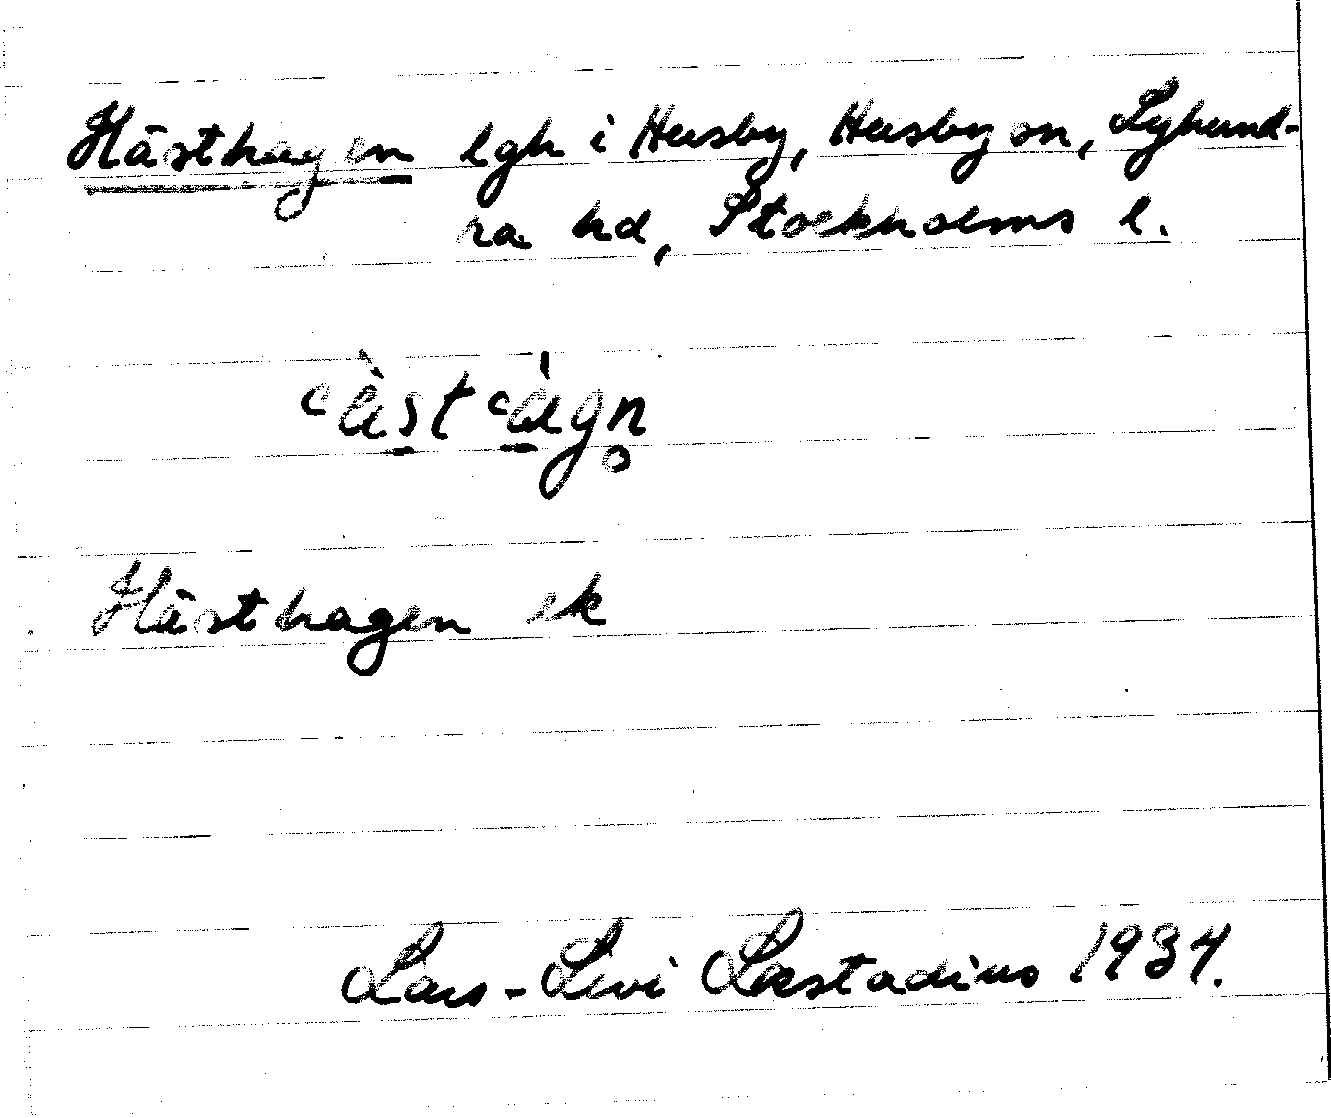 Hästhagen lgh i Husby, Husby sn, Lyhund-
ra hd, Stockholms l.
Hästhagen ek
Lars-Levi Læstadius 1934.